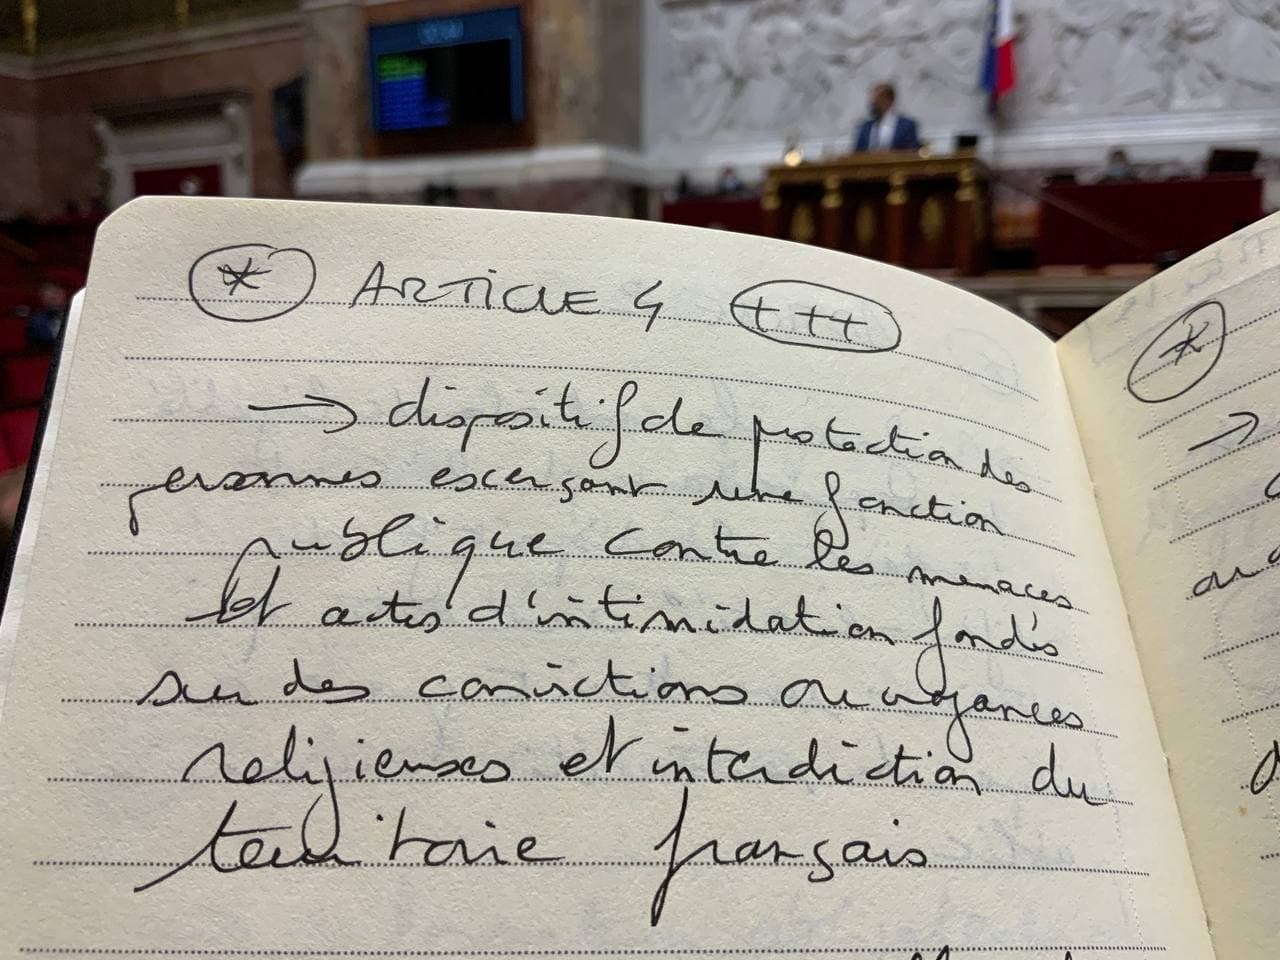 * ARTICLE 4 +++
→ dispositif de protection des
personnes exerçant une fonction
publique contre les menaces
et actes d'intimidation fondés
sur des convictions ou croyances
religieuses et interdiction du
territoire français
*
→